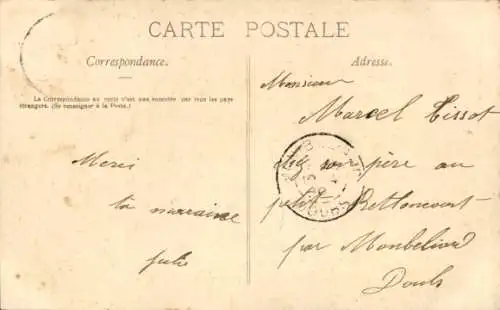 CARTE POSTALE
Correspondance.
Adresse.
La Correspondance au recto n'est pas acceptée par tous les pays
étrangers. (Se renseigner à la Poste.)
Merci
ta marraine
Julie
Monsieur
Marcel Tissot
chez son père au
petit Bethoncourt
par Monbeliard
Doubs